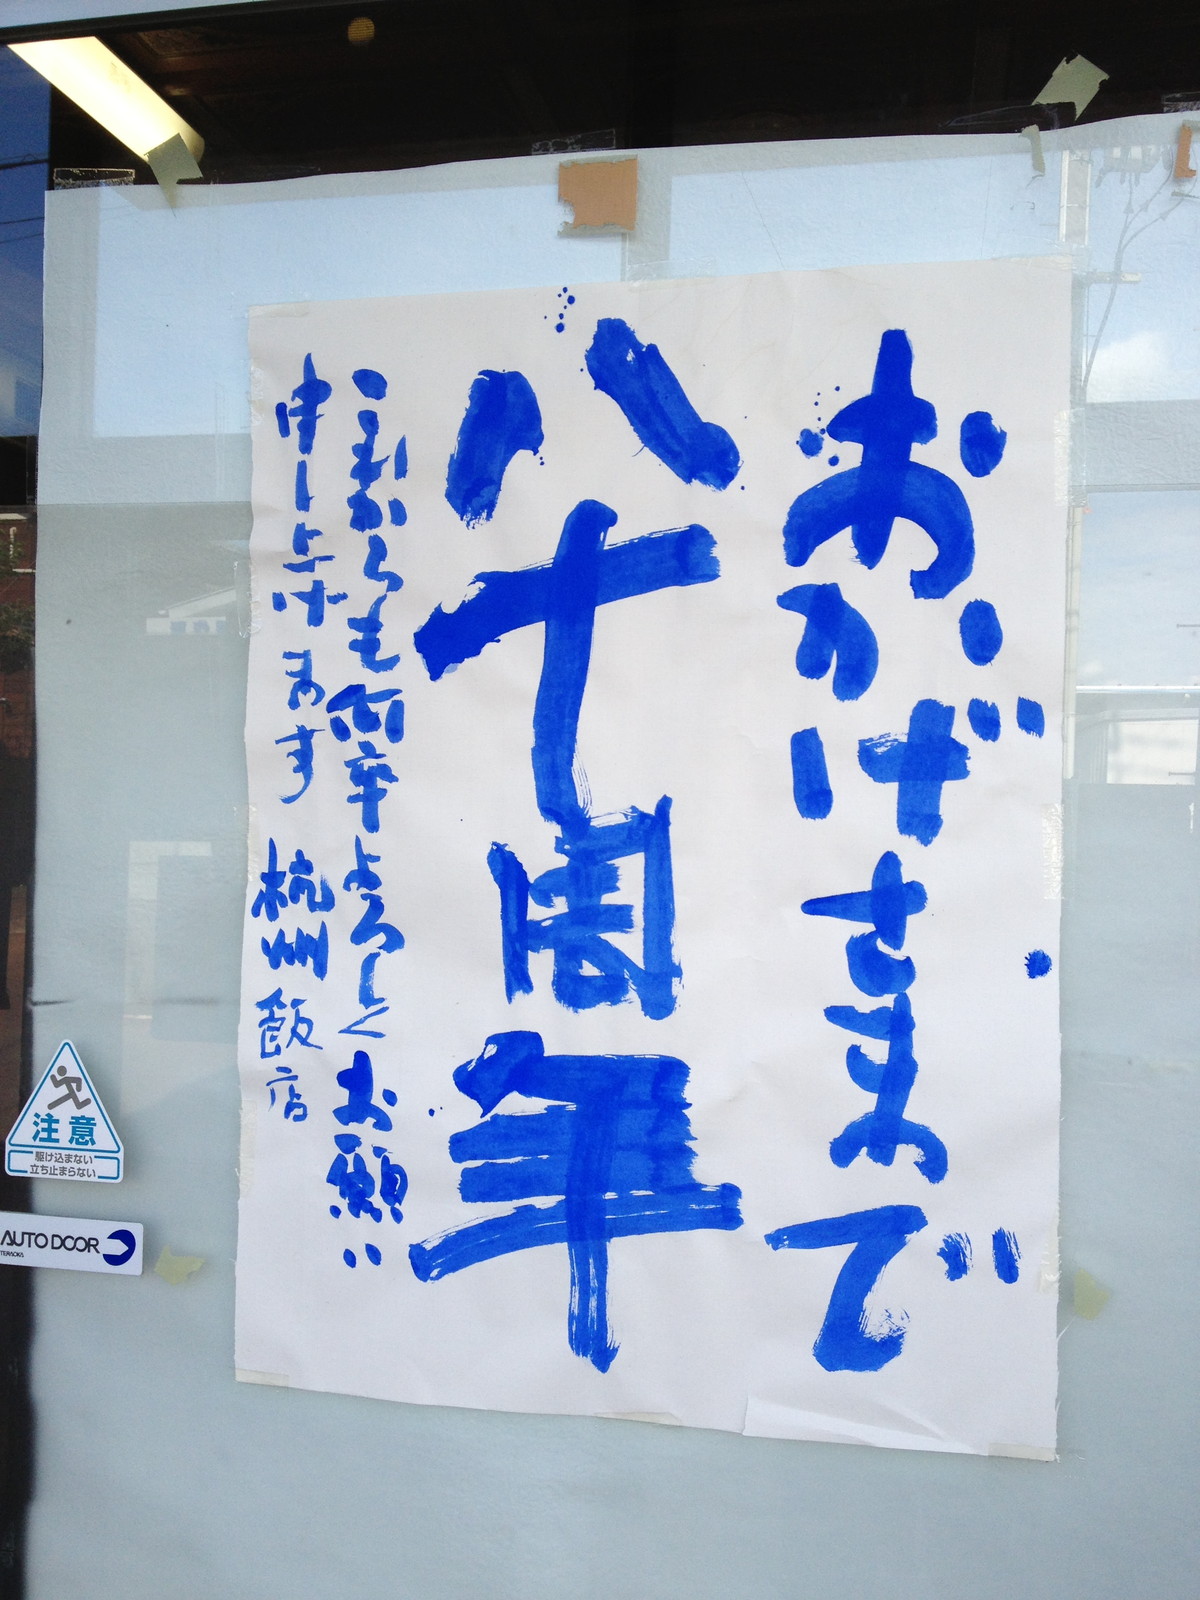 おかげさまで
八十周年
これからも何卒よろしくお願い
申し上げます 杭州飯店
注意
駆け込まない
立ち止まらない
AUTO DOOR
TERAOKA